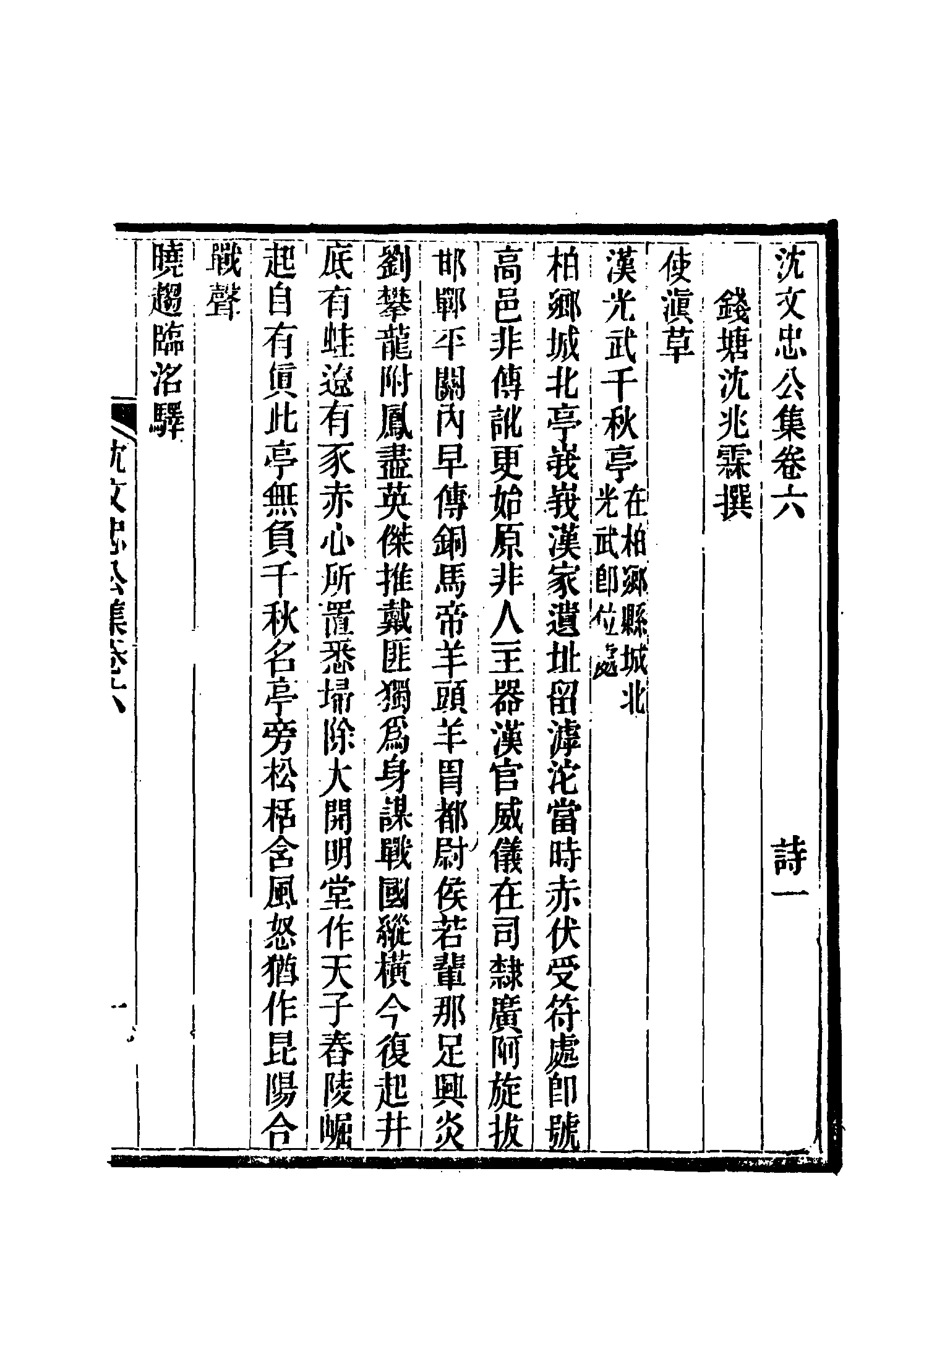 沈文忠公集卷六　詩一
錢塘沈兆霖撰
使滇草
漢光武千秋亭在柏鄉縣城北光武即位處
柏鄉城北亭峩峩漢家遺址留滹沱當時赤伏受符處即號
高邑非傳訛更始原非人王器漢官威儀在司隸廣阿旋拔
邯鄲平關內早傳銅馬帝羊頭羊胃都尉侯若輩那足興炎
劉攀龍附鳳盡英傑推戴匪獨爲身謀戰國縱橫今復起井
底有蛙遼有豕赤心所置悉埽除大開明堂作天子舂陵崛
起自有眞此亭無負千秋名亭旁松栝含風怒猶作昆陽合
戰聲
曉趨臨洺驛
沈文忠公集卷六
一